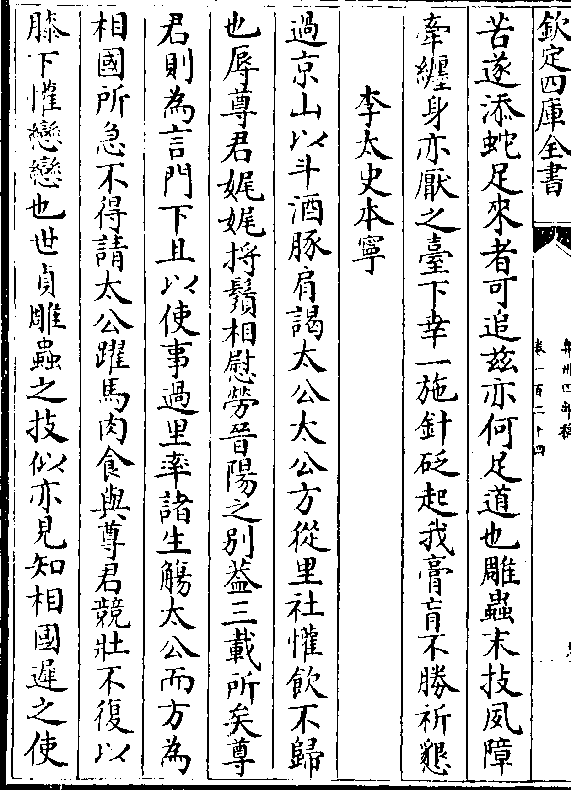 欽定四庫全書
弇州四部稿
卷一百二十四
苦遂添蛇足來者可追兹亦何足道也雕蟲末技夙障
牽纏身亦厭之臺下幸一施針砭起我膏肓不勝祈懇
李太史本寧
過京山以斗酒豚肩謁太公太公方從里社懽飲不歸
也辱尊君娓娓捋鬚相慰勞晉陽之别葢三載所矣尊
君則為言門下且以使事過里率諸生觴太公而方為
相國所急不得請太公躍馬肉食與尊君競壯不復以
膝下懽戀戀也世貞雕蟲之技似亦見知相國遲之使